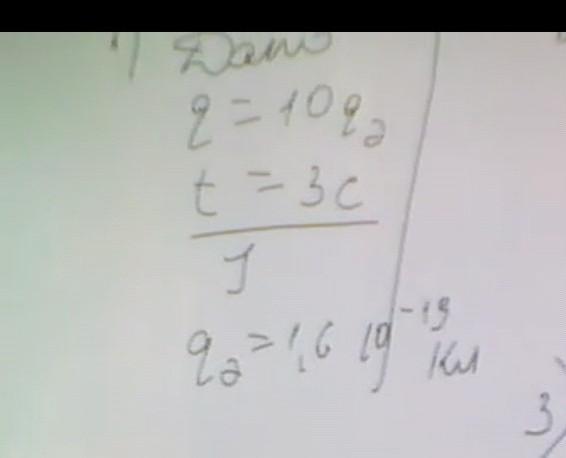 1) Дано
q = 10 qэ
t = 3 с
J
qэ = 1,6 10⁻¹⁹ Кл
3)